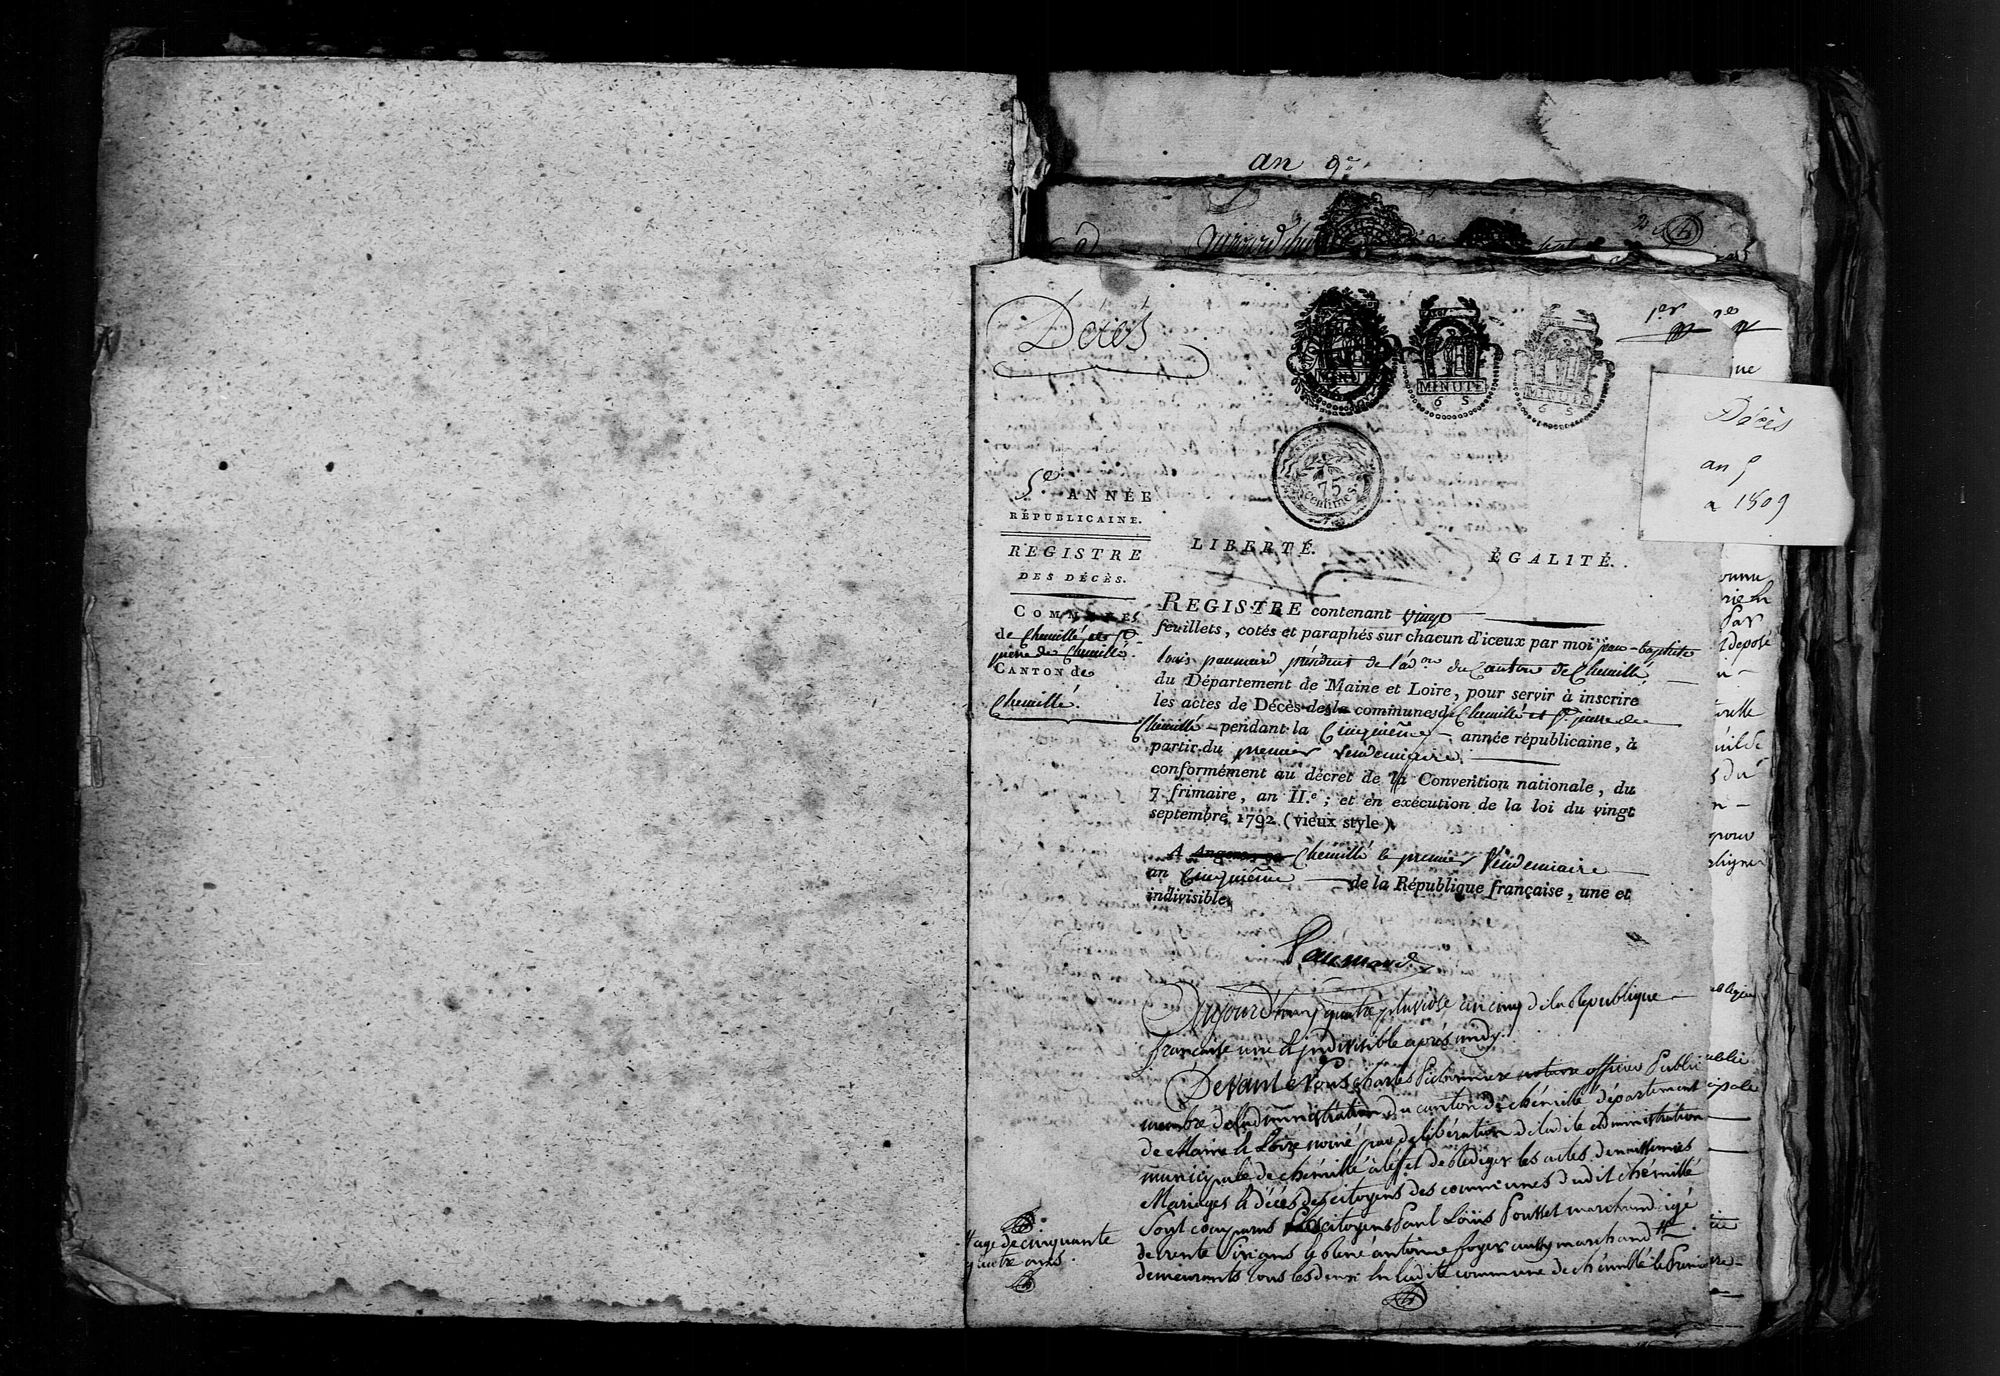 an 9.e
Décès
1.er
MINUTE
6 S
MINUTE
6 S
75
centimes
Décès
an 5
a 1809
5e ANNÉE
RÉPUBLICAINE.
REGISTRE
DES DÉCÈS.
COMMUNES
de Chemillé et St
pierre de Chemillé
CANTON de
Chemillé.
LIBERTÉ. ÉGALITÉ.
REGISTRE contenant vingt
feuillets, cotés et paraphés sur chacun d'iceux par moi jean-baptiste
louis paumard président de l'adon du Canton de Chemillé
du Département de Maine et Loire, pour servir à inscrire
les actes de Décès des communes de Chemillé et St pierre de
Chemillé pendant la Cinquième année républicaine, à
partir du premier Vendemiaire.
conformément au décret de la Convention nationale, du
7 frimaire, an II.e ; et en exécution de la loi du vingt
septembre 1792 (vieux style).
A Angers, ce Chemillé le premier Vendemiaire
an Cinquième de la République française, une et
indivisible.
Paumard
Aujourd'huy quatre pluviose an cinq de la Republique
francaise une & indivisible après midy.
Devant Nous charles officier Public
membre de l'administration du canton de chémillé département
de Maine & Loire nomé par deliberation de ladite administration
municipale de chémillé à l'effet de Rédiger les actes de naissances
Mariages & décés des citoyens des communes dudit chémillé
Sont comparus Les citoyens Paul Loüis Pousset marchand agé
de trente Six ans & René antoine foyer aussy marchand #
demeurants tous les deux en ladite commune de chémillé le Premier
# agé de cinquante
quatre ans.